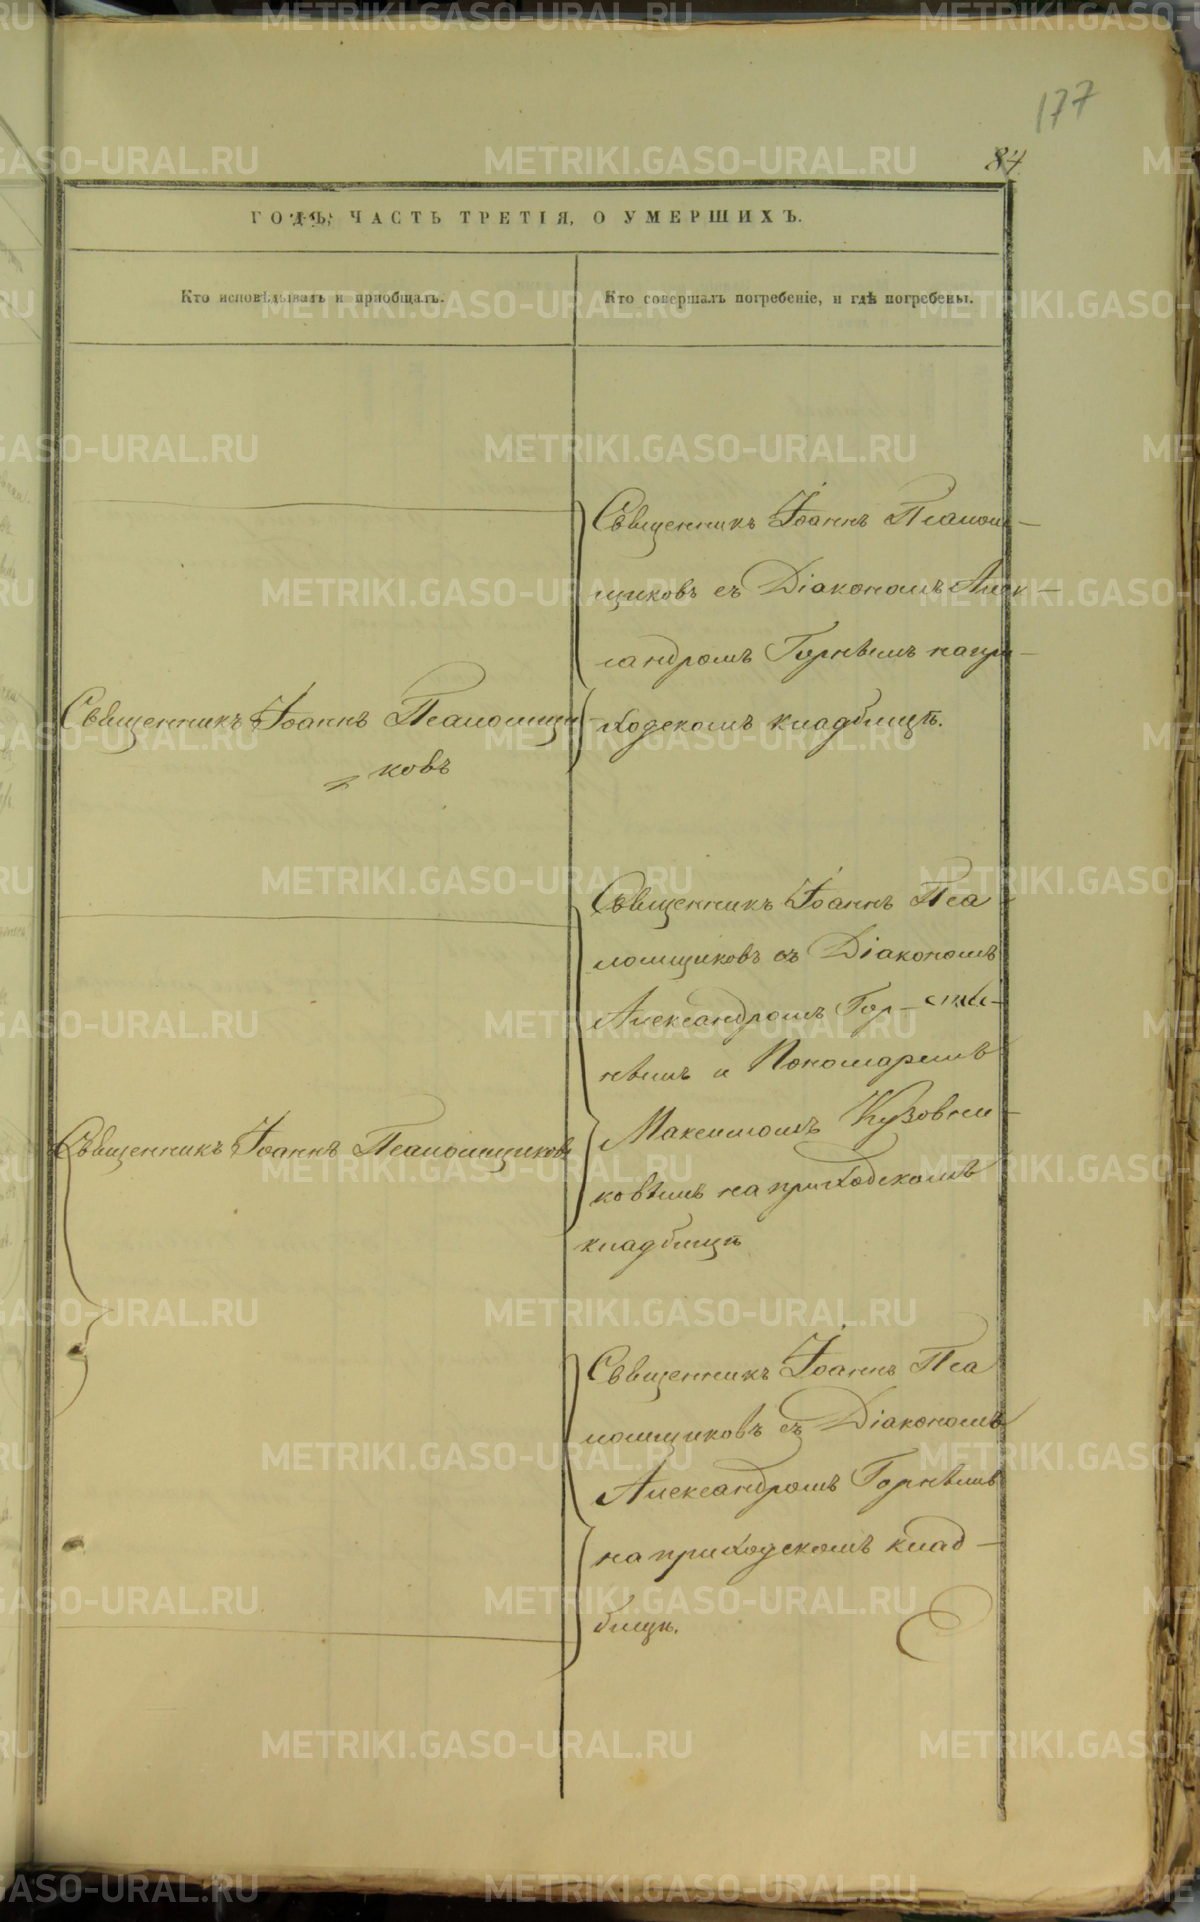 177
84
ГОДЪ, ЧАСТЬ ТРЕТІЯ, О УМЕРШИХЪ.
Кто исповѣдывалъ и пріобщалъ.
Кто совершалъ погребеніе, и гдѣ погребены.
Священникъ Іоаннъ Псаломщи-
ковъ
Священникъ Іоаннъ Псаломщиковъ
Священникъ Іоаннъ Псалом-
щиковъ съ Діакономъ Алек-
сандромъ Горнѣмъ на при-
ходскомъ кладбищѣ.
Священникъ Іоаннъ Пса
ломщиковъ съ Діакономъ
Александромъ Гор-
нѣмъ и Пономаремъ
Максимомъ Кузовни-
ковѣмъ на приходскомъ
кладбищѣ
Священникъ Іоаннъ Пса
ломщиковъ съ Діакономъ
Александромъ Горнѣмъ
на приходскомъ клад-
бищѣ.
METRIKI.GASO-URAL.RU